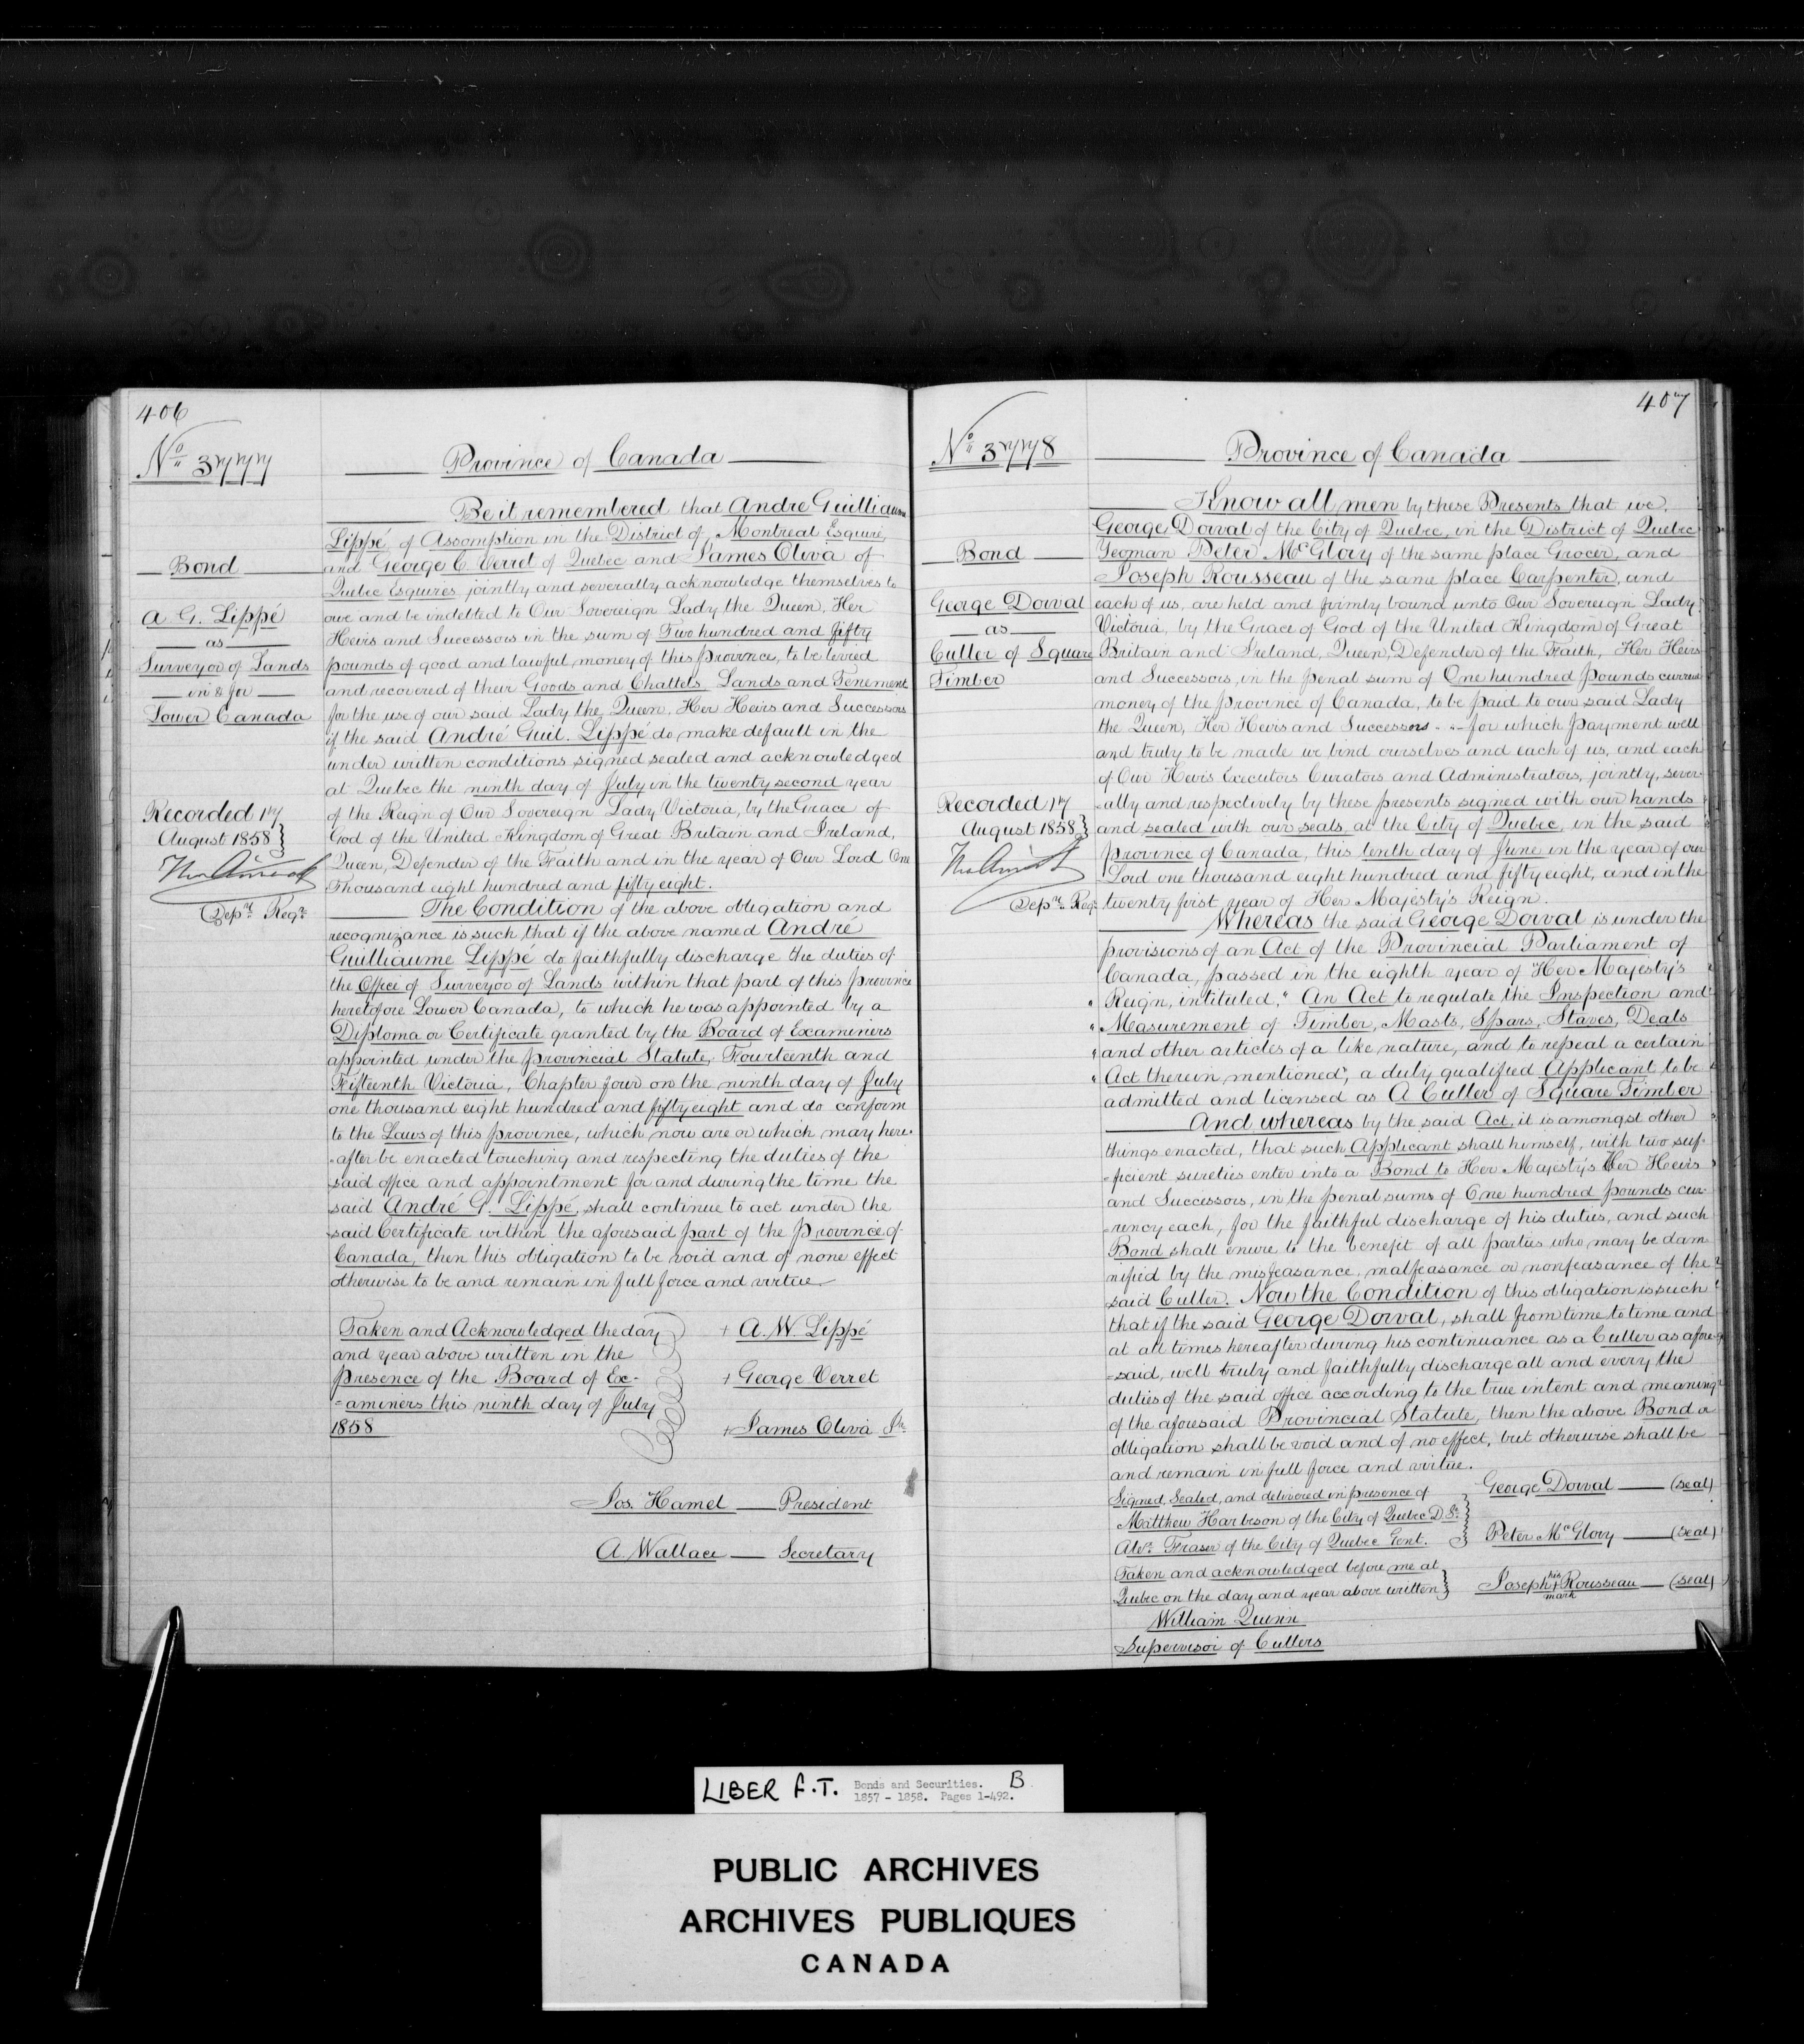 406
No 3777
Province of Canada
Be it remembered that Andre Guilliaume
Lippé of Assomption in the District of Montreal Esquire,
and George C. Verret of Quebec and James Oliva of
Quebec Esquires jointly and severally acknowledge themselves to
owe and be indebted to Our Sovereign Lady the Queen, Her
Heirs and Successors in the sum of Two hundred and fifty
pounds of good and lawful money of this Province, to be levied
and recovered of their Goods and Chattels Lands and Tenement
for the use of our said Lady the Queen, Her Heirs and Successors
if the said André Guil. Lippé do make default in the
under written conditions signed sealed and acknowledged
at Quebec the ninth day of July in the twenty second year
of the Reign of Our Sovereign Lady Victoria, by the Grace of
God of the United Kingdom of Great Britain and Ireland,
Queen, Defender of the Faith and in the year of Our Lord One
Thousand eight hundred and fifty eight.
The Condition of the above obligation and
recognizance is such, that if the above named André
Guilliaume Lippé do faithfully discharge the duties of
the Office of Surveyor of Lands within that part of this province
heretofore Lower Canada, to which he was appointed by a
Diploma or Certificate granted by the Board of Examiners
appointed under the provincial Statute, Fourteenth and
Fifteenth Victoria, Chapter four on the ninth day of July
one thousand eight hundred and fifty eight and do conform
to the Laws of this province, which now are or which may here-
-after be enacted touching and respecting the duties of the
said office and appointment for and during the time the
said André G. Lippé, shall continue to act under the
said Certificate within the aforesaid part of the Province of
Canada, then this obligation to be void and of none effect
otherwise to be and remain in full force and virtue
Bond
A. G. Lippé
as
Surveyor of Lands
in & for
Lower Canada
Recorded 17
August 1858
Depy. Regr.
Taken and Acknowledged the day
and year above written in the
presence of the Board of Ex-
-aminers this ninth day of July
1858
+ A. W. Lippé
+ George Verret
+ James Oliva Jr.
Jos. Hamel — President
A. Wallace — Secretary
407
No 3778
Province of Canada
Know all men by these Presents that we
George Dorval of the City of Quebec, in the District of Quebec
Yeoman Peter McGlory of the same place Grocer, and
Joseph Rousseau of the same place Carpenter, and
each of us, are held and firmly bound unto Our Sovereign Lady
Victoria, by the Grace of God of the United Kingdom of Great
Britain and Ireland, Queen, Defender of the Faith, Her Heirs
and Successors, in the penal sum of One hundred pounds current
money of the Province of Canada, to be paid to our said Lady
the Queen, Her Heirs and Successors - for which payment well
and truly to be made we bind ourselves and each of us, and each
of Our Heirs Executors Curators and Administrators, jointly, sever-
-ally and respectively by these presents signed with our hands
and sealed with our seals at the City of Quebec, in the said
province of Canada, this tenth day of June in the year of our
Lord one thousand eight hundred and fifty eight, and in the
twenty first year of Her Majesty's Reign.
Whereas the said George Dorval is under the
provisions of an Act of the Provincial Parliament of
Canada, passed in the eighth year of Her Majesty's
" Reign, intituled, " An Act to regulate the Inspection and
" Measurement of Timber, Masts, Spars, Staves, Deals
" and other articles of a like nature, and to repeal a certain
" Act therein mentioned", a duly qualified Applicant to be
admitted and licensed as A Culler of Square Timber
And whereas by the said Act, it is amongst other
things enacted, that such Applicant shall himself, with two suf-
-ficient sureties enter into a Bond to Her Majesty's Her Heirs
and Successors, in the penal sums of One hundred pounds cur-
-rency each, for the faithful discharge of his duties, and such
Bond shall enure to the benefit of all parties who may be dam
nified by the misfeasance, malfeasance or nonfeasance of the
said Culler. Now the Condition of this obligation is such
that if the said George Dorval, shall from time to time and
at all times hereafter during his continuance as a Culler as afore-
-said, well truly and faithfully discharge all and every the
duties of the said office according to the true intent and meaning
of the aforesaid Provincial Statute, then the above Bond or
obligation shall be void and of no effect, but otherwise shall be
and remain in full force and virtue.
Bond
George Dorval
as
Culler of Square
Timber
Recorded 17
August 1858
Depy. Regr.
Signed, Sealed, and delivered in presence of
Matthew Harbeson of the City of Quebec D. Sr.
Alexr. Fraser of the City of Quebec Gent.
Taken and acknowledged before me at
Quebec on the day and year above written
William Quinn
Supervisor of Cullers
George Dorval — (seal)
Peter McGlory — (seal)
Joseph his + mark Rousseau — (seal)
LIBER F.T. Bonds and Securities. B
1857 - 1858. Pages 1-492.
PUBLIC ARCHIVES
ARCHIVES PUBLIQUES
CANADA